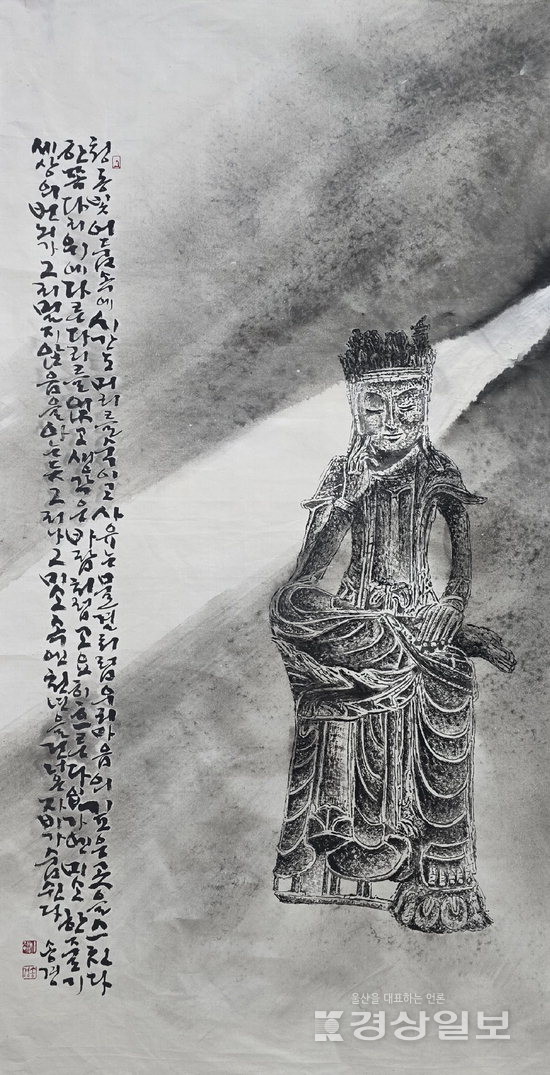 청동빛 어둠 속에 시간도 머리를 숙이고 사유는 물결처럼 우리 마음의 깊은 곳을 스친다
한쪽 다리 위에 다른 다리를 얹고 생각은 바람처럼 고요히 흐른다 입가엔 미소 한 줄기
세상의 번뇌가 그리 멀지 않음을 아는듯 그러나 그 미소 속엔 천년을 건너온 자비가 숨쉰다
송경
울산을 대표하는 언론
경상일보